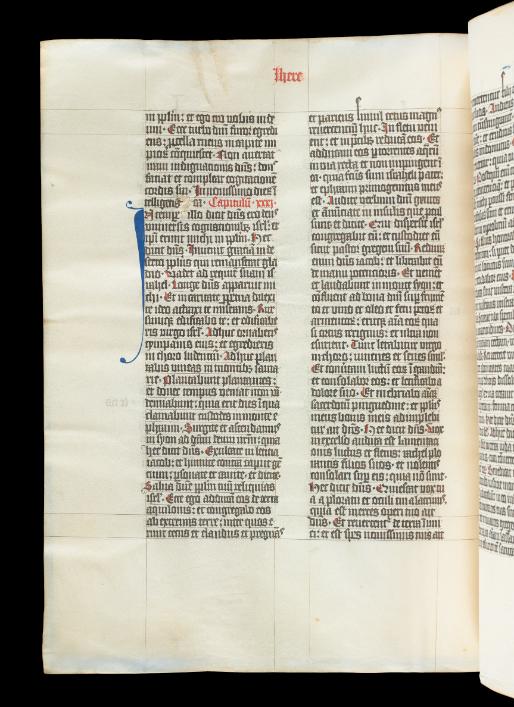 Ihere
in pplm: et ego ero vobis in de
um. Ecce turbo dñi furor egredi
ens: procella ruens in capite im
pior̃ cõquiescet. Non avertet
iram indignationis dñs: don̄
faciat et compleat cogitatione
cordis sui. In novissimo dier̃ ĩ
telligetis ea. Capitulũ xxxi.
In tempe illo dicit dñs: ero deus
universis cognationib;: isrl: et
ipĩ erunt michi in pplm. Hec
dicit dñs. Invenit gratiã in de
serto pplus qui remãserat gla
dio. Vadet ad requiẽ suam is
rahel. Longe dñs apparuit mi
chi. Et in caritate ppetua dilexi
te: ideo attraxi te miserans. Rur
sumq; edificabo te: et edificabe
ris virgo isrl. Adhuc ornaberis
tympanis tuis: et egredieris
in choro ludentiũ. Adhuc plan
tabis vineas in montib; sama
rie. Plantabunt plantantes:
et donec tempus veniat non vĩ
demiabunt: quia erit dies ĩ qua
clamabunt custodes in monte e
phraim. Surgite et ascendamus
in syon ad dñm deum nr̃m: quia
hec dicit dñs. Exultate in leticia
iacob: et hinnite contra caput gẽ
cium: psonate et canite: et dicite.
Salva dñe pplm tuũ reliquias
isrl. Ecce ego adducã eos de terra
aquilonis: et congregabo eos
ab extremis terre: inter quos e
runt cecus et claudus et pregnãs
et pariens simul cetus magnꝰ
revertenciũ huc. In fletu veni
ent: et in precib; reducã eos. Et
adducam eos p torrentes aquar̃
in via recta et non impingent ĩ
ea: quia factꝰ sum israheli pater:
et ephraim primogenitus meus
est. Audite verbum dñi gentes
et anũciate in insulis que pcul
sunt: et dicite. Qui dispersit isrl
congregabit eũ: et custodiet eũ
sicut pastor gregem suũ. Redimt
enim dñs iacob: et liberabit eũ
de manu potentioris. Et veniẽt
et laudabunt in monte syon: et
cõfluent ad bona dñi sup frumẽ
to et vino et oleo et fetu pecorũ et
armentor̃: eritq; aĩa eor̃ quasi
ortus irriguus: et ultra non
esurient. Tunc letabitur virgo
in choro: iuvenes et senes simul.
Et convertã luctũ eor̃ ĩ gaudiũ:
et consolabor eos: et letificabo a
dolore suo. Et inebriabo aĩam
sacerdotũ pinguedine: et pplus
meus bonis meis adimplebi
tur ait dñs. Hec dicit dñs. Vox
in excelso audita est lamentati
onis luctus et fletus: rachel plo
rantis filios suos: et nolentis
consolari sup eis: quia nõ sunt.
Hec dicit dñs. Quiescat vox tu
a a ploratu et oculi tui a lacrimis:
quia est merces operi tuo ait
dñs. Et revertent̃ de terra inimi
ci: et est spes novissimis tuis ait